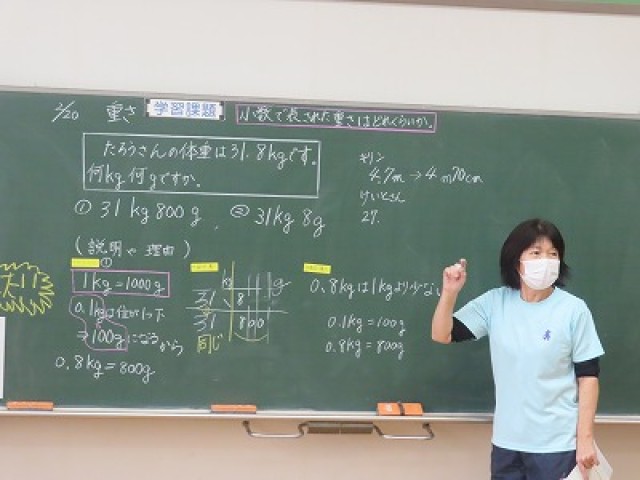 2/20 重さ 学習課題 小数で表された重さはどれくらいか。
たろうさんの体重は31.8kgです。
何kg何gですか。
① 31kg 800g, ② 31kg 8g
キリン
4.7m → 4m70cm
けいとさん
27.
(説明や理由)
①
1kg=1000g
0.1kgは位が1つ下
→100gになるから
0.8kg=800g
大1
kg g
31 8
31 800
同じ
0.8kgは1kgより少ない
0.1kg=100g
0.8kg=800g